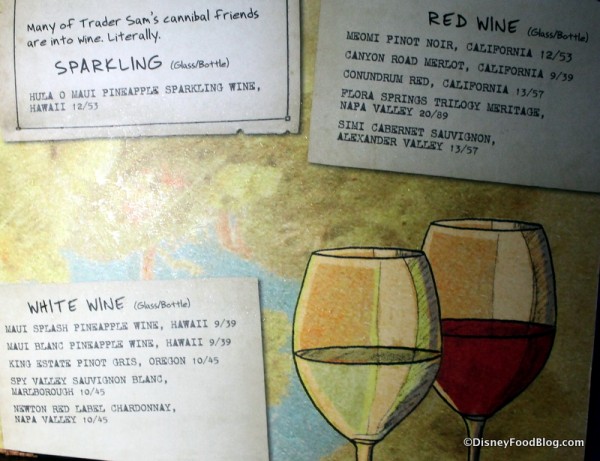 Many of Trader Sam's cannibal friends
are into wine. Literally.
SPARKLING (Glass/Bottle)
HULA O MAUI PINEAPPLE SPARKLING WINE,
HAWAII 12/53
RED WINE (Glass/Bottle)
MEOMI PINOT NOIR, CALIFORNIA 12/53
CANYON ROAD MERLOT, CALIFORNIA 9/39
CONUNDRUM RED, CALIFORNIA 13/57
FLORA SPRINGS TRILOGY MERITAGE,
NAPA VALLEY 20/89
SIMI CABERNET SAUVIGNON,
ALEXANDER VALLEY 13/57
WHITE WINE (Glass/Bottle)
MAUI SPLASH PINEAPPLE WINE, HAWAII 9/39
MAUI BLANC PINEAPPLE WINE, HAWAII 9/39
KING ESTATE PINOT GRIS, OREGON 10/45
SPY VALLEY SAUVIGNON BLANC,
MARLBOROUGH 10/45
NEWTON RED LABEL CHARDONNAY,
NAPA VALLEY 10/45
©DisneyFoodBlog.com